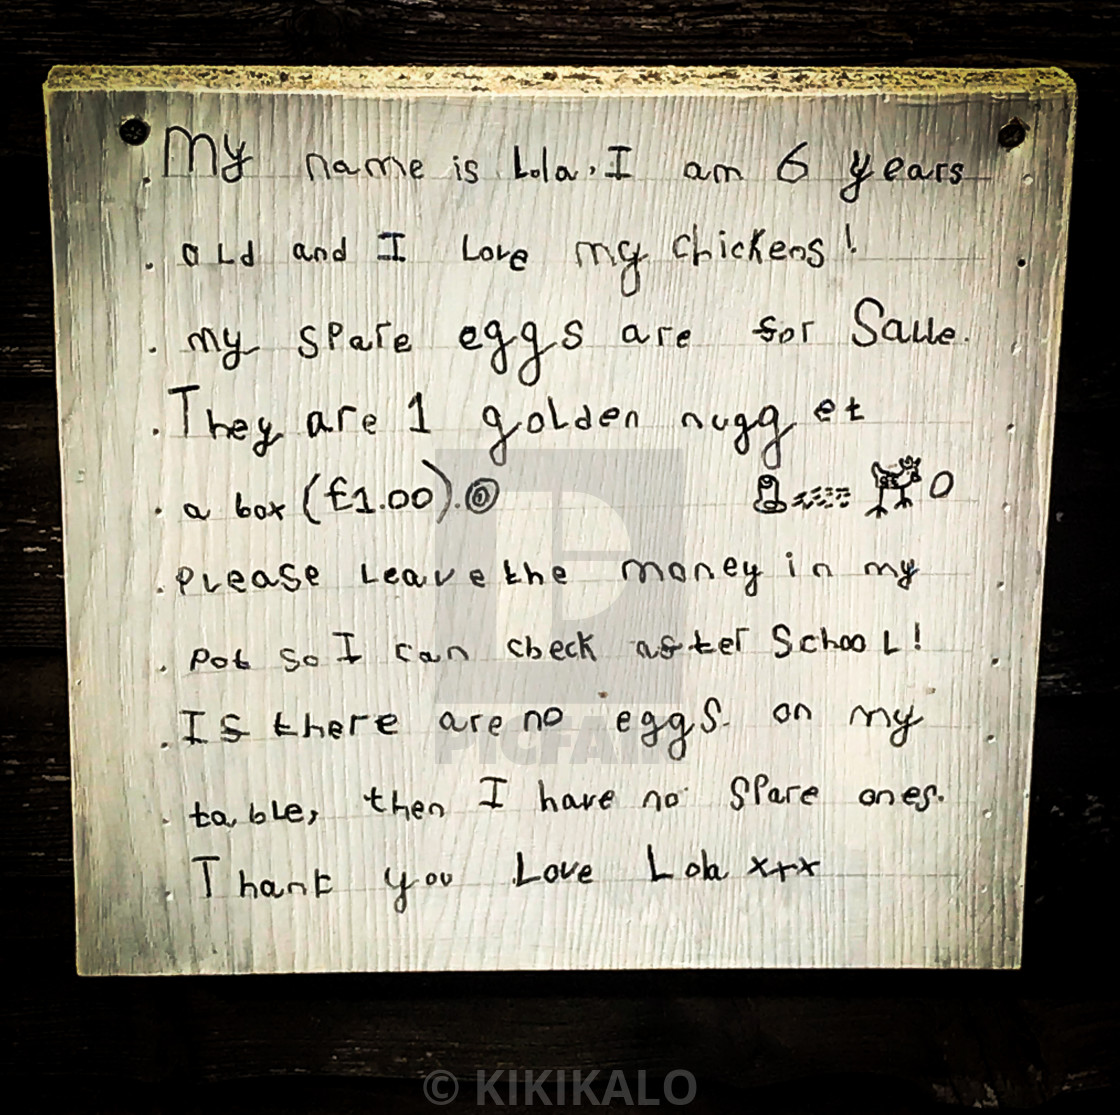 My name is Lola. I am 6 years
old and I Love my chickens!
my spare eggs are for Salle.
They are 1 golden nugget
a box (£1.00).
Please Leave the money in my
Pot so I can check after School!
If there are no eggs on my
table, then I have no spare ones.
Thank you Love Lola xxx
PICFAIR
© KIKIKALO